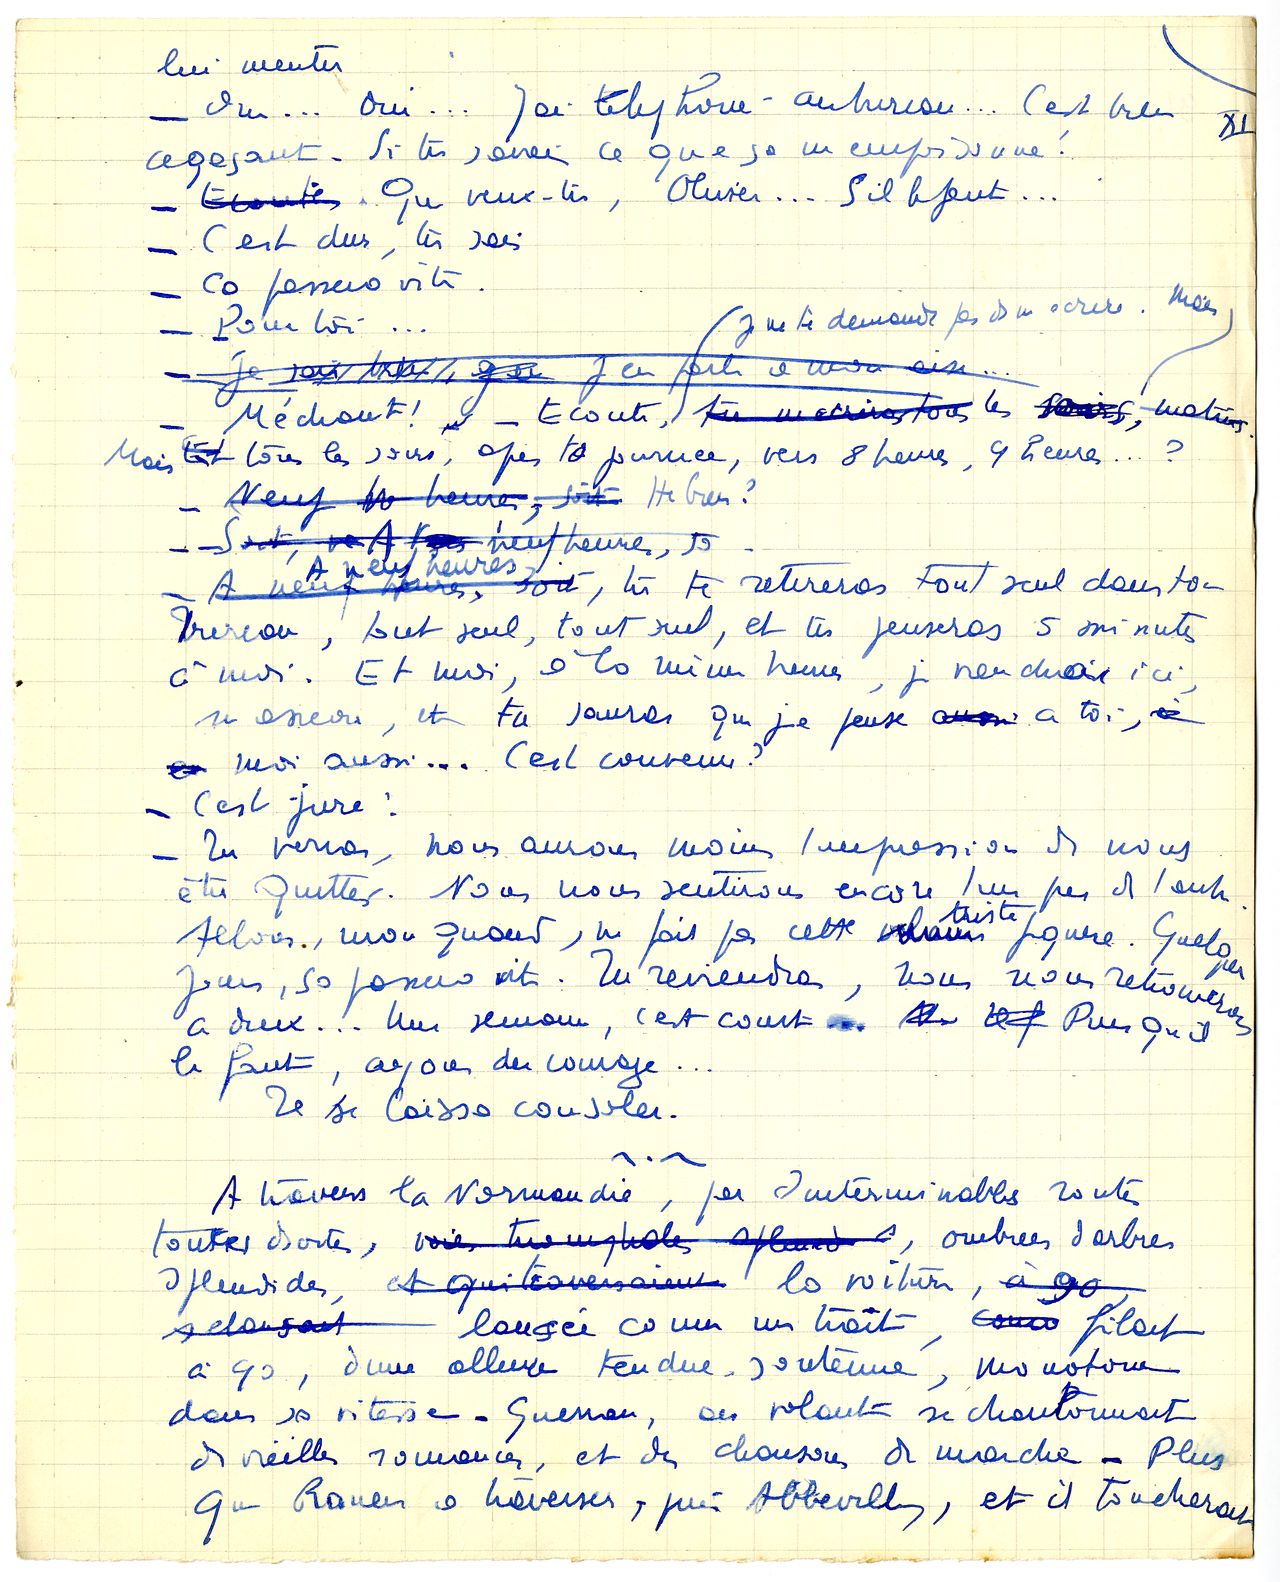 lui mentir
XI
— Oui... Oui... J'ai téléphoné au bureau... C'est bien
agaçant. Si tu savais ce que ça m'empoisonne!
— Ecoutes. Que veux-tu, Olivier... S'il le faut...
— C'est dur, tu sais
— Ca passera vite.
— Pour toi...
je ne te demande pas de m'ecrire. Mais
— Je sais bien, que J'en parle à mon aise...
— Méchant! — Ecoute, tu m'ecriras tous les soirs, matins.
Mais Et tous les jours, après ta journée, vers 8 heures, 9 heures...?
— Neuf heures, soit Hé bien?
— Soit, A neuf heures, ta
A neuf heures,
— A neuf heures, soit, tu te retireras tout seul dans ton
bureau, tout seul, tout seul, et tu penseras 5 minutes
à moi. Et moi, à la même heure, je viendrai ici,
m'asseoir, et tu sauras que je pense aussi a toi,
moi aussi... C'est convenu?
— C'est juré!
— Tu verras, nous aurons moins l'impression de nous
être quittés. Nous nous sentirons encore l'un pres de l'autre.
triste
Allons, mon grand, ne fais pas cette figure. Quelques
jours, ça passera vite. Tu reviendras, nous nous retrouverons
a deux... Une semaine, c'est court... Puisqu'il
le faut, ayons du courage...
Il se laissa consoler.
A travers la Normandie, par d'interminables routes
toutes droites, voies triomphales, ombrées d'arbres
splendides, et qui traversaient la voiture, à 90,
s'elançant lancée comme un trait, filait
à 90, d'une allure tendue, soutenue, monotone
dans sa vitesse. Guesnon, au volant se chantonnait
de vieilles romances, et des chansons de marche — Plus
que Rouen a traverser, puis Abbeville, et il toucherait